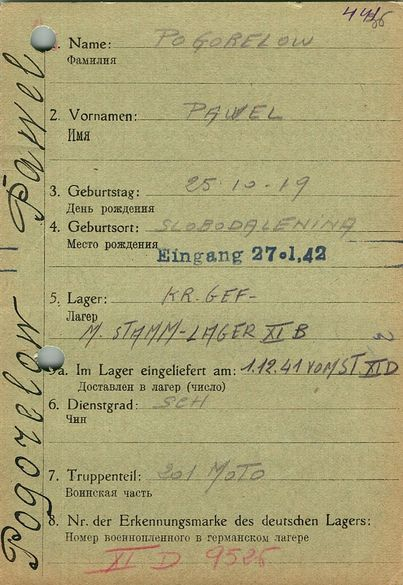 44
1. Name: POGORELOW
Фамилия
2. Vornamen: PAWEL
Имя
3. Geburtstag: 25·10·19
День рождения
4. Geburtsort: SLOBODALENINA
Место рождения
Eingang 27.1.42
5. Lager: KR. GEF-
Лагер
M. STAMM-LAGER XI B
5a. Im Lager eingeliefert am: 1.12.41 VOM ST XI D
Доставлен в лагер (число)
6. Dienstgrad: SCH
Чин
7. Truppenteil: 201 MOTO
Воинская часть
8. Nr. der Erkennungsmarke des deutschen Lagers:
Номер военнопленного в германском лагере
XI D 9525
Pogorelow Pawel